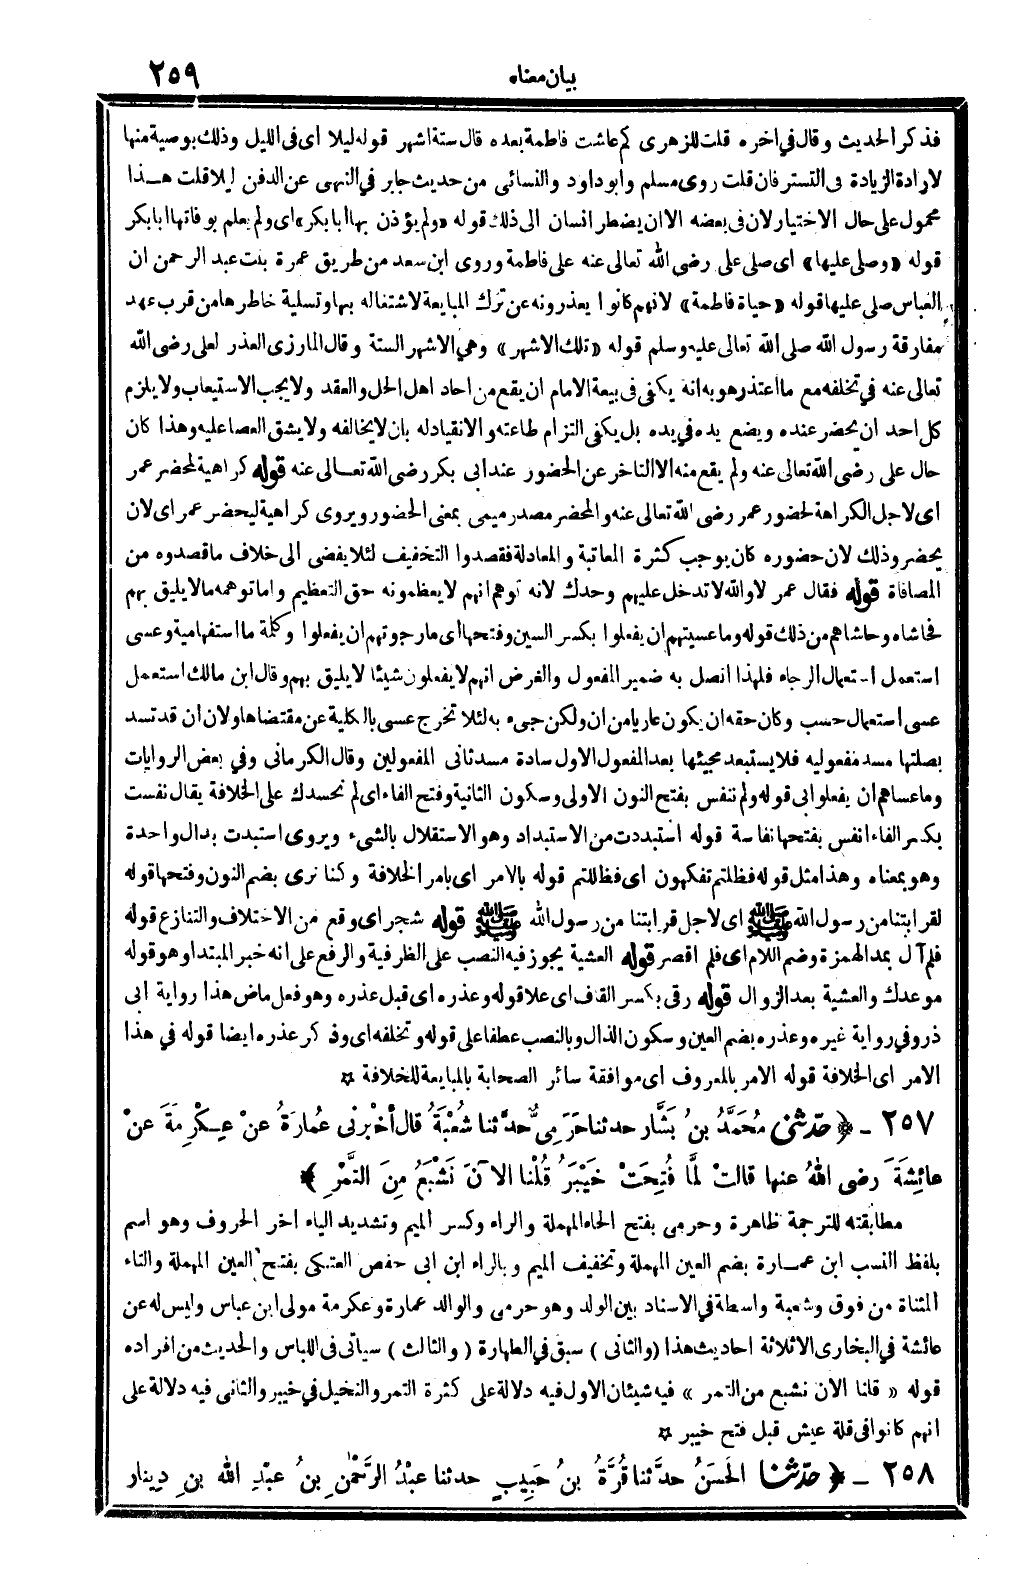 بيان معناه ٢٥٩
فذكر الحديث وقال في اخره قلت للزهرى كم عاشت فاطمة بعده قال ستة اشهر قوله ليلا اى فى الليل وذلك بوصية منها
لارادة الزيادة فى التستر فان قلت روى مسلم وابو داود والنسائى من حديث جابر في النهى عن الدفن ليلا قلت هــذا
محمول على حال الاختيار لان فى بعضه الا ان يضطر انسان الى ذلك قوله «ولم يؤذن بها أبا بكر» اى ولم يعلم بوفاتها ابا بكر
قوله «وصلى عليها» اى صلى على رضى الله تعالى عنه على فاطمة وروى ابن سعد من طريق عمرة بنت عبد الرحمن ان
العباس صلى عليها قوله «حياة فاطمة» لانهم كانوا يعذرونه عن ترك المبايعة لاشتغاله بها وتسلية خاطرها من قرب عهد
مفارقة رسول الله صلى الله تعالى عليه وسلم قوله «تلك الاشهر» وهي الاشهر الستة وقال المازرى العذر لعلى رضى الله
تعالى عنه في تخلفه مع ما اعتذر هو به انه يكفى فى بيعة الامام ان يقع من احاد اهل الحل والعقد ولا يجب الاستيعاب ولا يلزم
كل احد ان يحضر عنده ويضع يده في يده بل يكفى التزام طاعته والانقياد له بان لا يخالفه ولا يشق العصا عليه وهذا كان
حال على رضى الله تعالى عنه ولم يقع منه الا التاخر عن الحضور عند ابى بكر رضى الله تعــالى عنه قوله كراهية لمحضر عمر
اى لاجل الكراهة لحضور عمر رضى الله تعالى عنه والمحضر مصدر ميمى بمعنى الحضور ويروى كراهية ليحضر عمر اى لان
يحضر وذلك لان حضوره كان يوجب كثرة المعاتبة والمعادلة فقصدوا التخفيف لئلا يفضى الى خلاف ما قصدوه من
المصافاة قوله فقال عمر لا والله لا تدخل عليهم وحدك لانه توهم انهم لا يعظمونه حق التعظيم واما توهمه ما لا يليق بهم
فحاشاه وحاشاهم من ذلك قوله وما عسيتهم ان يفعلوا بكسر السين وفتحها اى ما رجوتهم ان يفعلوا وكلمة ما استفهامية وعسى
استعمل استعمال الرجاء فلهذا اتصل به ضمير المفعول والغرض انهم لا يفعلون شيئا لا يليق بهم وقال ابن مالك استعمل
عسى استعمال حسب وكان حقه ان يكون عاريا من ان ولكن جىء به لئلا تخرج عسى بالكلية عن مقتضاها ولان ان قد تسد
بصلتها مسد مفعوليه فلا يستبعد مجيئها بعد المفعول الاول سادة مسد ثانى المفعولين وقال الكرمانى وفي بعض الروايات
وما عساهم ان يفعلوا بى قوله ولم ننفس بفتح النون الاولى وسكون الثانية وفتح الفاء اى لم نحسدك على الخلافة يقال نفست
بكسر الفاء انفس بفتحها نفاسة قوله استبددت من الاستبداد وهو الاستقلال بالشىء ويروى استبدت بدال واحدة
وهو بمعناه وهذا مثل قوله فظلتم تفكهون اى فظللتم قوله بالامر اى بامر الخلافة وكنا نرى بضم النون وفتحها قوله
لقرابتنا من رسول الله ﷺ اى لاجل قرابتنا من رسول الله ﷺ قوله شجر اى وقع من الاختلاف والتنازع قوله
فلم آل بمد الهمزة وضم اللام اى فلم اقصر قوله العشية يجوز فيه النصب على الظرفية والرفع على انه خبر المبتدا وهو قوله
موعدك والعشية بعد الزوال قوله رقى بكسر القاف اى علا قوله وعذره اى قبل عذره وهو فعل ماض هذا رواية ابى
ذر وفى رواية غيره وعذره بضم العين وسكون الذال وبالنصب عطفا على قوله وتخلفه اى وذكر عذره ايضا قوله في هذا
الامر اى الخلافة قوله الامر بالمعروف اى موافقة سائر الصحابة بالمبايعة للخلافة ☆
٢٥٧ ـ ﴿ حَدَّثَنِى مُحَمَّدُ بنُ بَشَّار حدثنا حَرَمِىٌّ حَدَّثنا شُعْبَةُ قال أخْبرنى عُمارَةُ عنْ عِكْرِمَةَ عنْ
عائِشَةَ رضى اللهُ عنها قالتْ لَمَّا فُتِحَتْ خَيْبَرُ قُلْنا الآنَ نَشْبَعُ مِنَ التَّمْرِ ﴾
مطابقته للترجمة ظاهرة وحرمى بفتح الحاء المهملة والراء وكسر الميم وتشديد الياء اخر الحروف وهو اسم
بلفظ النسب ابن عمــارة بضم العين المهملة وتخفيف الميم وبالراء ابن ابى حفص العتكى بفتح العين المهملة والتاء
المثناة من فوق وشعبة واسطة في الاسناد بين الولد وهو حرمى والوالد عمارة وعكرمة مولى ابن عباس وليس له عن
عائشة في البخارى الا ثلاثة احاديث هذا (والثانى) سبق في الطهارة (والثالث) سياتى فى اللباس والحديث من افراده
قوله «قلنا الان نشبع من التمر» فيه شيئان الاول فيه دلالة على كثرة التمر والنخيل في خيبر والثانى فيه دلالة على
انهم كانوا فى قلة عيش قبل فتح خيبر ☆
٢٥٨ ـ ﴿ حَدَّثَنا الحَسَنُ حدَّثنا قُرَّةُ بنُ حَبِيبٍ حدثنا عبْدُ الرَّحْمٰنِ بنُ عبْدِ الله بنِ دِينار